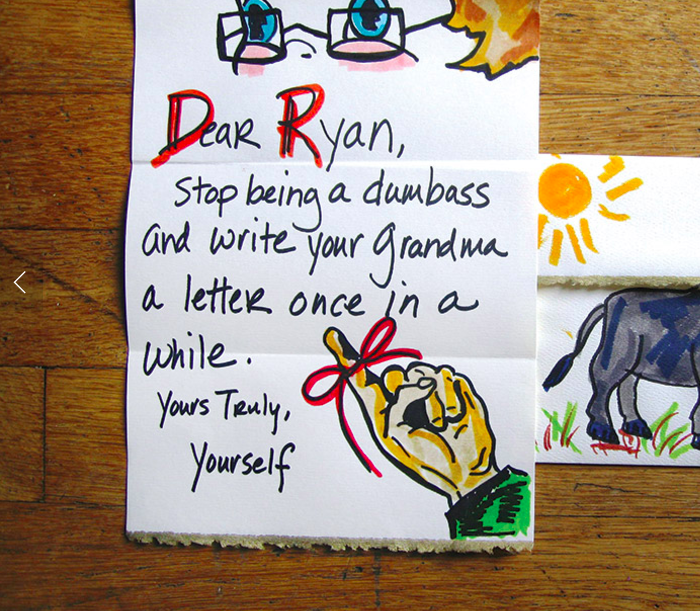 Dear Ryan,
Stop being a dumbass
and write your Grandma
a letter once in a
while.
Yours Truly,
Yourself